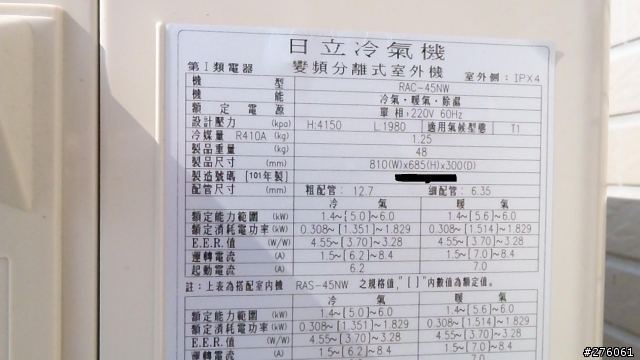 日立冷氣機
第I類電器 變頻分離式室外機 室外側：IPX4
機型 RAC-45NW
機能 冷氣・暖氣・除濕
額定電源 單相,220V 60Hz
設計壓力 (kpa) H:4150 L:1980 適用氣候型態 T1
冷媒量 R410A (kg) 1.25
製品重量 (kg) 48
製品尺寸 (mm) 810(W)x685(H)x300(D)
製造號碼 [101年製]
配管尺寸 (mm) 粗配管： 12.7 細配管： 6.35
冷氣 暖氣
額定能力範圍 (kW) 1.4~[5.0]~6.0 1.4~[5.6]~6.0
額定消耗電功率 (kW) 0.308~[1.351]~1.829 0.308~[1.514]~1.829
E.E.R.值 (W/W) 4.55~[3.70]~3.28 4.55~[3.70]~3.28
運轉電流 (A) 1.5~[6.2]~8.4 1.5~[7.0]~8.4
起動電流 (A) 6.2 7.0
註：上表為搭配室內機 RAS-45NW 之規格值,"[ ]"內數值為額定值。
冷氣 暖氣
額定能力範圍 (kW) 1.4~[5.0]~6.0 1.4~[5.6]~6.0
額定消耗電功率 (kW) 0.308~[1.351]~1.829 0.308~[1.514]~1.829
E.E.R.值 (W/W) 4.55~[3.70]~3.28 4.55~[3.70]~3.28
運轉電流 (A) 1.5~[6.2]~8.4 1.5~[7.0]~8.4
#276061